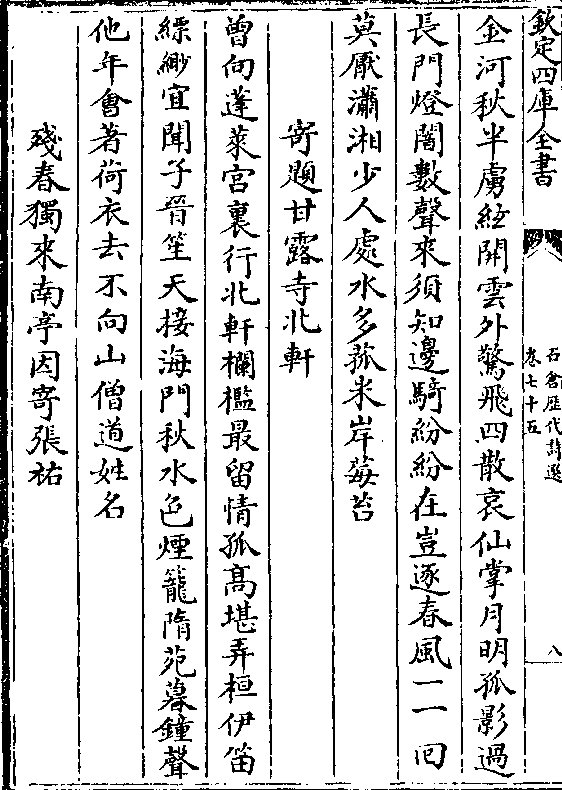 欽定四庫全書
石倉歷代詩選
卷七十五
八
金河秋半虜絃開雲外驚飛四散哀仙掌月明孤影過
長門燈闇數聲來須知邊騎紛紛在豈逐春風一一回
莫厭瀟湘少人處水多菰米岸莓苔
寄題甘露寺北軒
曾向蓬萊宮裏行北軒欄檻最留情孤髙堪弄桓伊笛
縹緲宜聞子晉笙天接海門秋水色煙籠隋苑暮鐘聲
他年會著荷衣去不向山僧道姓名
殘春獨來南亭因寄張祐